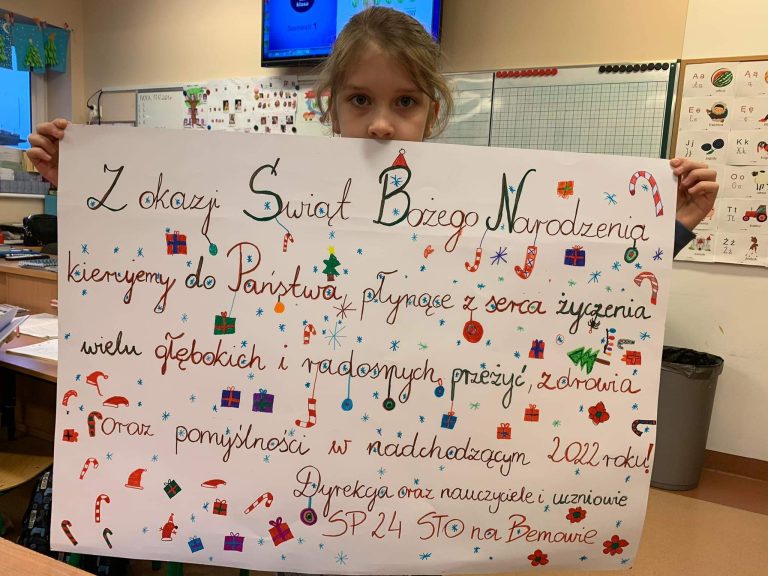 Z okazji Świąt Bożego Narodzenia
kierujemy do Państwa płynące z serca życzenia
wielu głębokich i radosnych przeżyć, zdrowia
oraz pomyślności w nadchodzącym 2022 roku!
Dyrekcja oraz nauczyciele i uczniowie
SP 24 STO na Bemowie